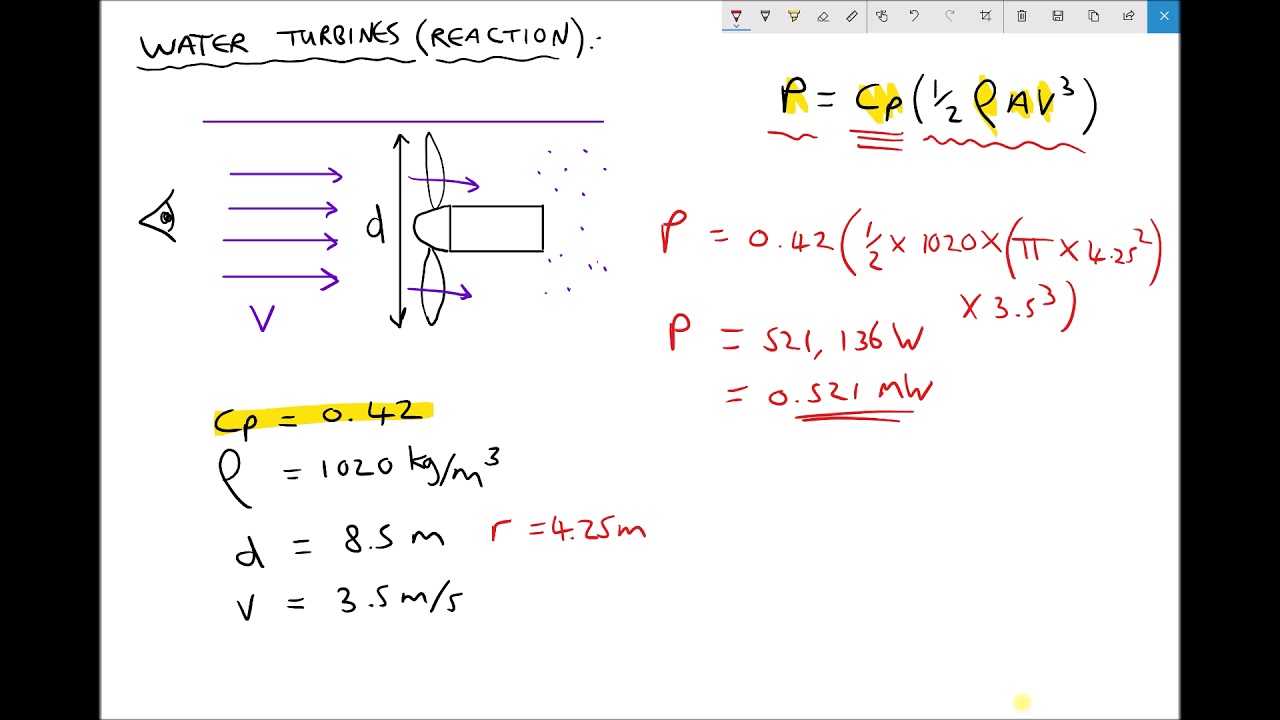 WATER TURBINES (REACTION):-
P = Cp (1/2 ρ A V³)
d
V
P = 0.42 (1/2 × 1020 × (π × 4.25²) × 3.5³)
P = 521,136 W
= 0.521 MW
Cp = 0.42
ρ = 1020 kg/m³
d = 8.5 m r = 4.25m
v = 3.5 m/s